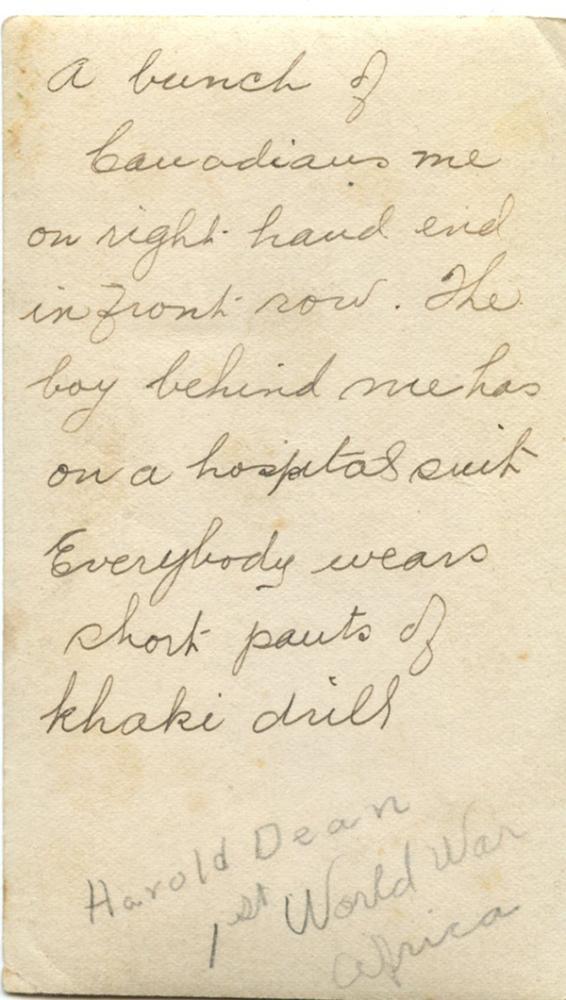 A bunch of
Canadians me
on right hand end
in front row. The
boy behind me has
on a hospital suit
Everybody wears
short pants of
khaki drill
Harold Dean
1st World War
Africa